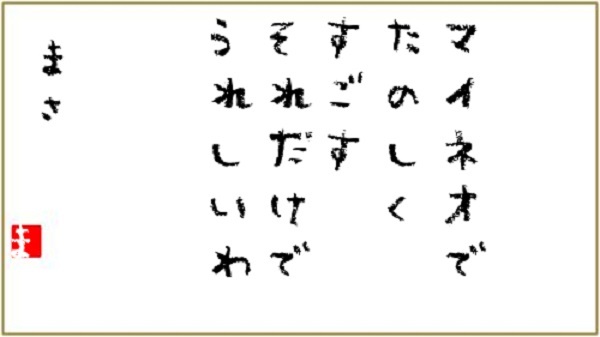 マイネオで
たのしく
すごす
それだけで
うれしいわ
まさ
ま